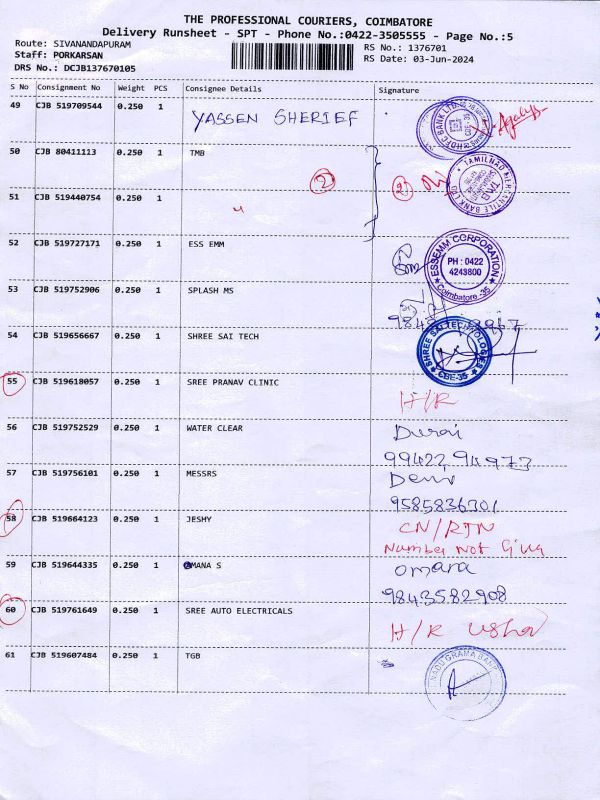 THE PROFESSIONAL COURIERS, COIMBATORE
Delivery Runsheet - SPT - Phone No.:0422-3505555 - Page No.:5
Route: SIVANANDAPURAM
RS No.: 1376701
Staff: PORKARSAN
RS Date: 03-Jun-2024
DRS No.: DCJB137670105
S No Consignment No Weight PCS Consignee Details Signature
49 CJB 519709544 0.250 1 YASSEN SHERIEF
HDFC BANK LTD
50 CJB 80411113 0.250 1 TMB
2
TAMILNAD MERCANTILE BANK LTD
TMB
51 CJB 519440754 0.250 1
52 CJB 519727171 0.250 1 ESS EMM
ESSEMM CORPORATION
PH : 0422
4243800
Coimbatore -35
53 CJB 519752906 0.250 1 SPLASH MS
54 CJB 519656667 0.250 1 SHREE SAI TECH
SHREE SAI TECHNOLOGIES
CBE-35
55 CJB 519618057 0.250 1 SREE PRANAV CLINIC
H/R
56 CJB 519752529 0.250 1 WATER CLEAR
Durai
99422 94973
57 CJB 519756101 0.250 1 MESSRS
9585836301
58 CJB 519664123 0.250 1 JESHY
CN/RTN
Number Not
59 CJB 519644335 0.250 1 OMANA S
omara
9843582908
60 CJB 519761649 0.250 1 SREE AUTO ELECTRICALS
H/R Usha
61 CJB 519607484 0.250 1 TGB
GRAMA BANK